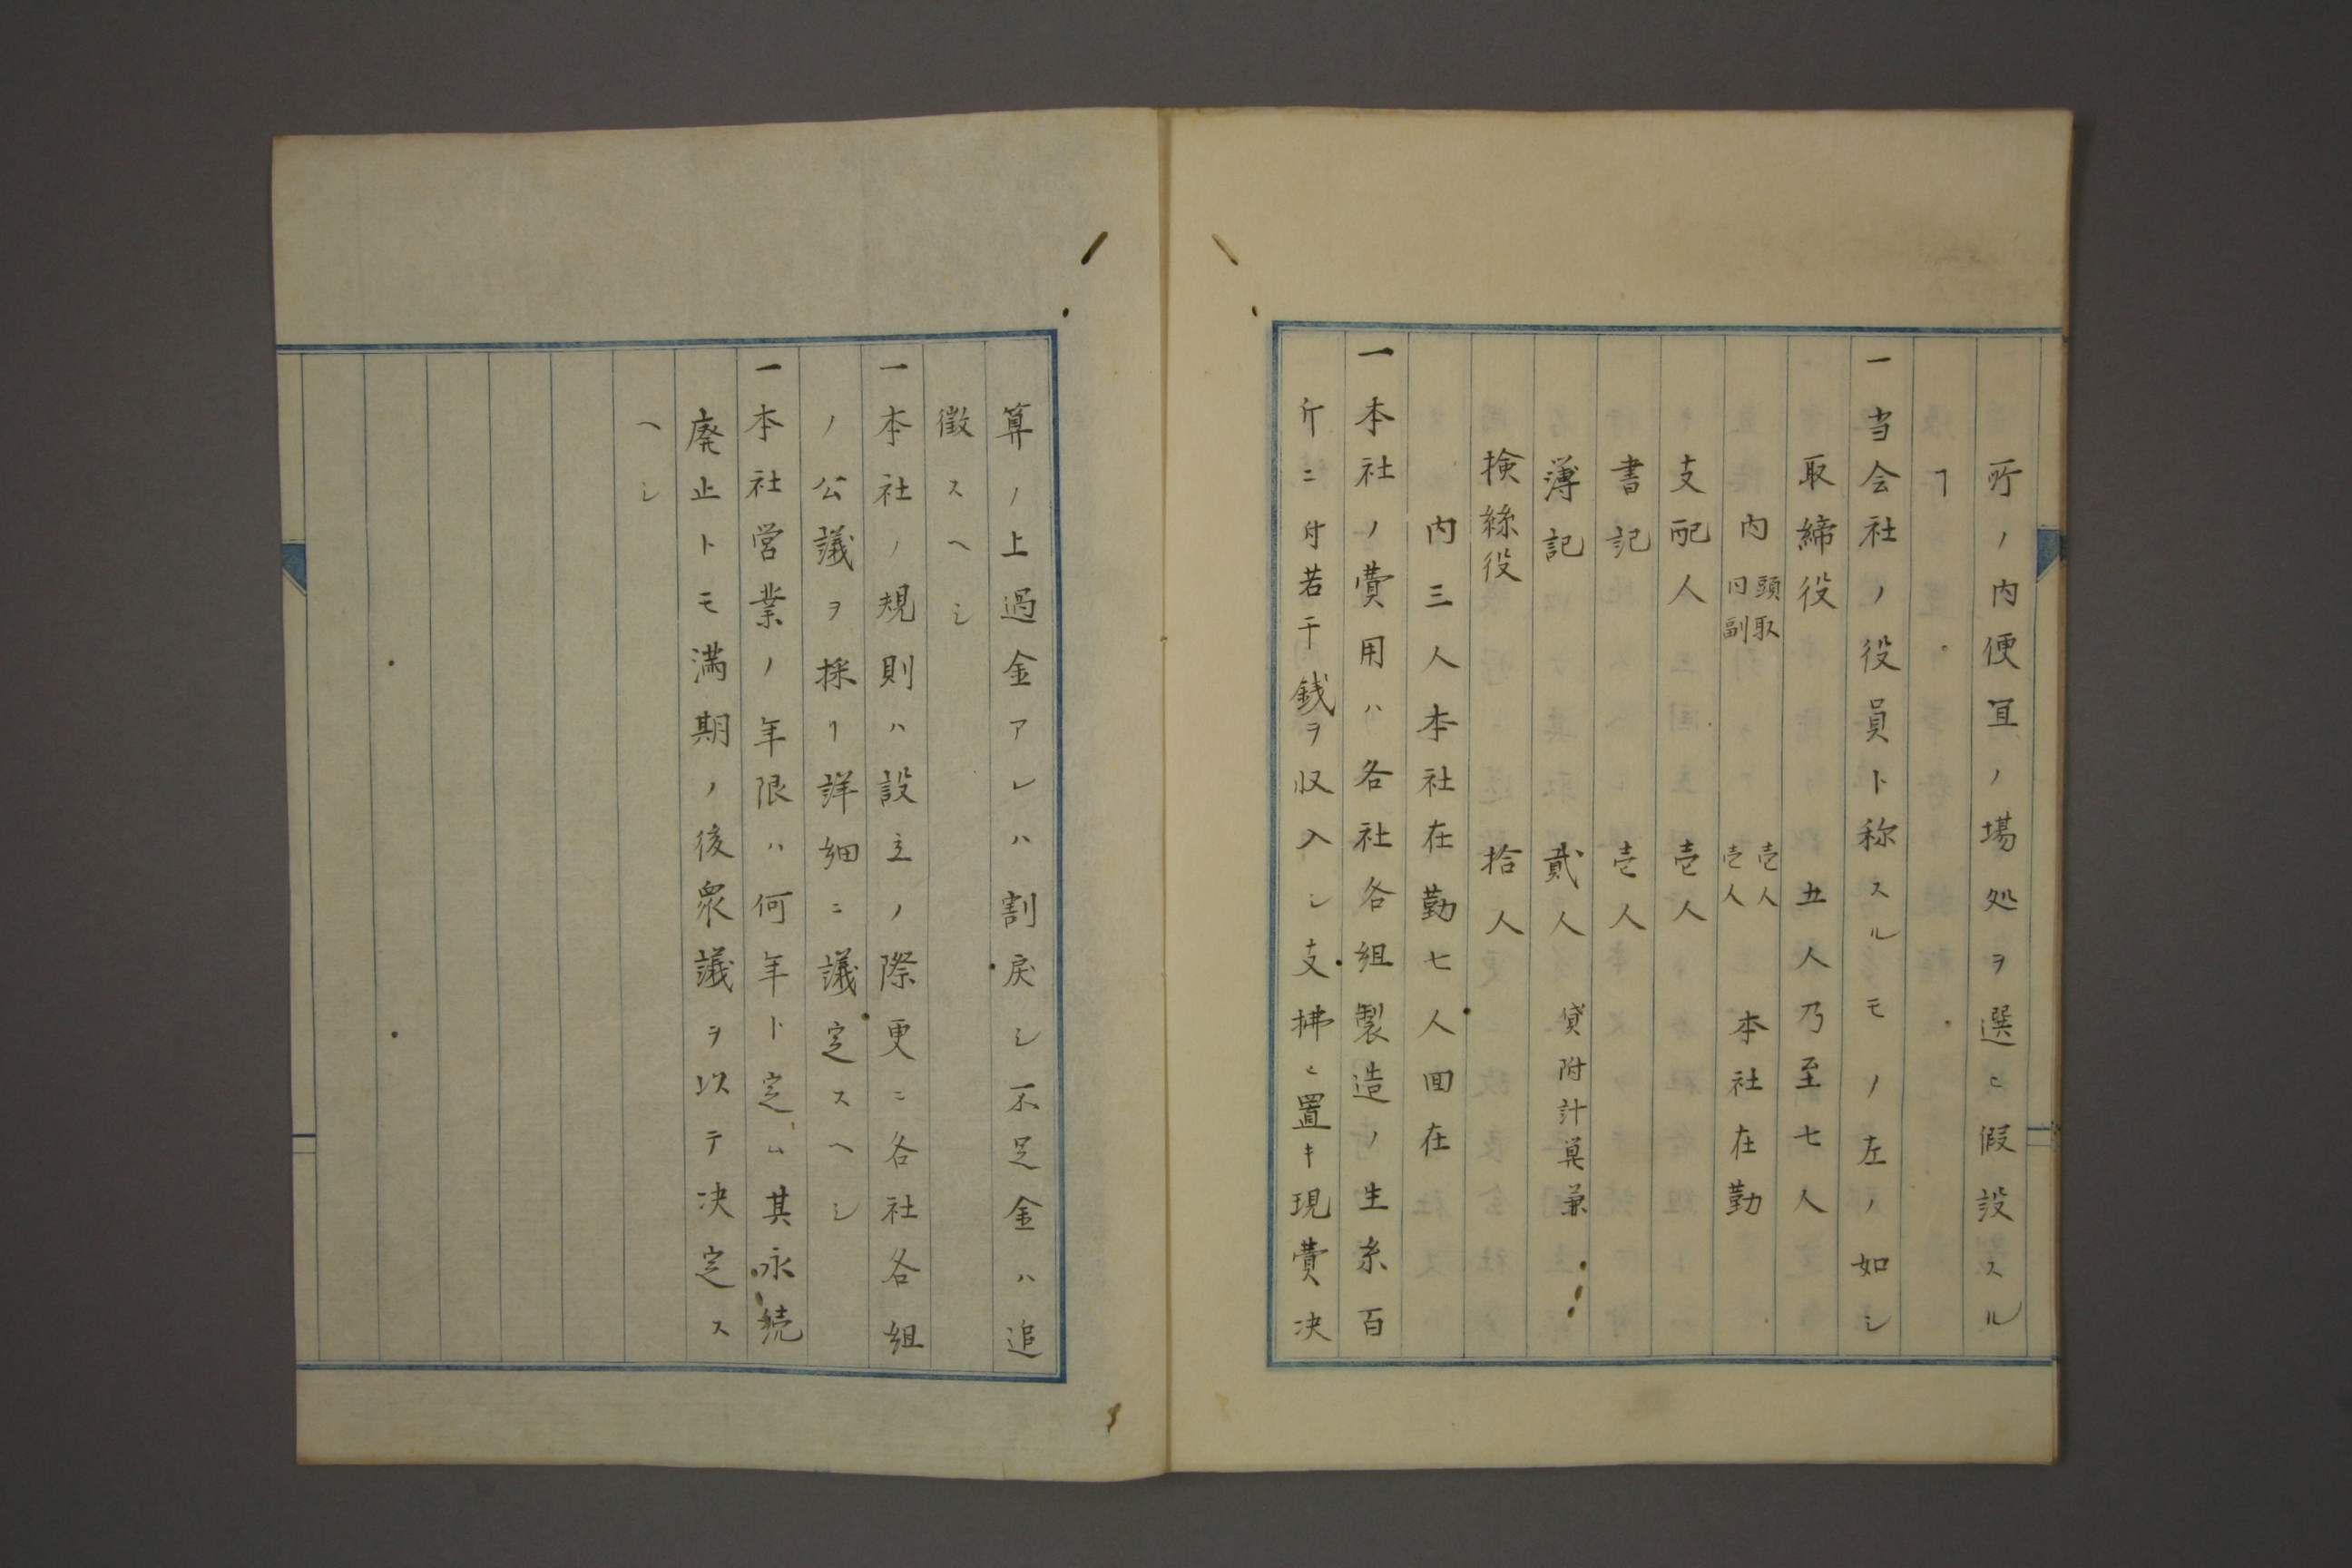 所ノ内便宜ノ場処ヲ選ヒ假設スル
ヿ
一当会社ノ役員ト称スルモノ左ノ如シ
取締役　五人乃至七人
内　頭取　壱人　本社在勤
同副　壱人
支配人　壱人
書記　壱人
簿記　貳人　貸附計算兼
検絲役　拾人
内三人本社在勤七人回在
一本社ノ費用ハ各社各組製造ノ生糸百
斤ニ付若干銭ヲ収入シ支拂ヒ置キ現費决
算ノ上過金アレハ割戻シ不足金ハ追
徴スヘシ
一本社ノ規則ハ設立ノ際更ニ各社各組
ノ公議ヲ採リ詳細ニ議定スヘシ
一本社営業ノ年限ハ何年ト定ム其永続
廃止トモ満期ノ後衆議ヲ以テ决定ス
ヘシ